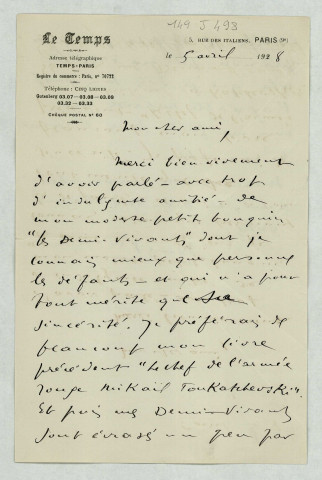 149 J 493
Le Temps
5, RUE DES ITALIENS, PARIS (9e)
Adresse télégraphique
TEMPS-PARIS
le 5 avril 1928
Registre du commerce : Paris, n° 76721
Téléphone : CINQ LIGNES
Gutenberg 03.07 — 03.08 — 03.09
03.32 — 03.33
CHÈQUE POSTAL N° 60
Mon cher ami,
Merci bien vivement
d'avoir parlé — avec trop
d'indulgente amitié — de
mon modeste petit bouquin
"les Demi-Vivants" dont je
connais mieux que personne
les défauts — et qui n'a pour
tout mérite que sa
sincérité. Je préférais de
beaucoup mon livre
précédent "Le chef de l'armée
rouge Mikail Toukatchevski".
Et puis mes Demi-Vivants
sont écrasés un peu par